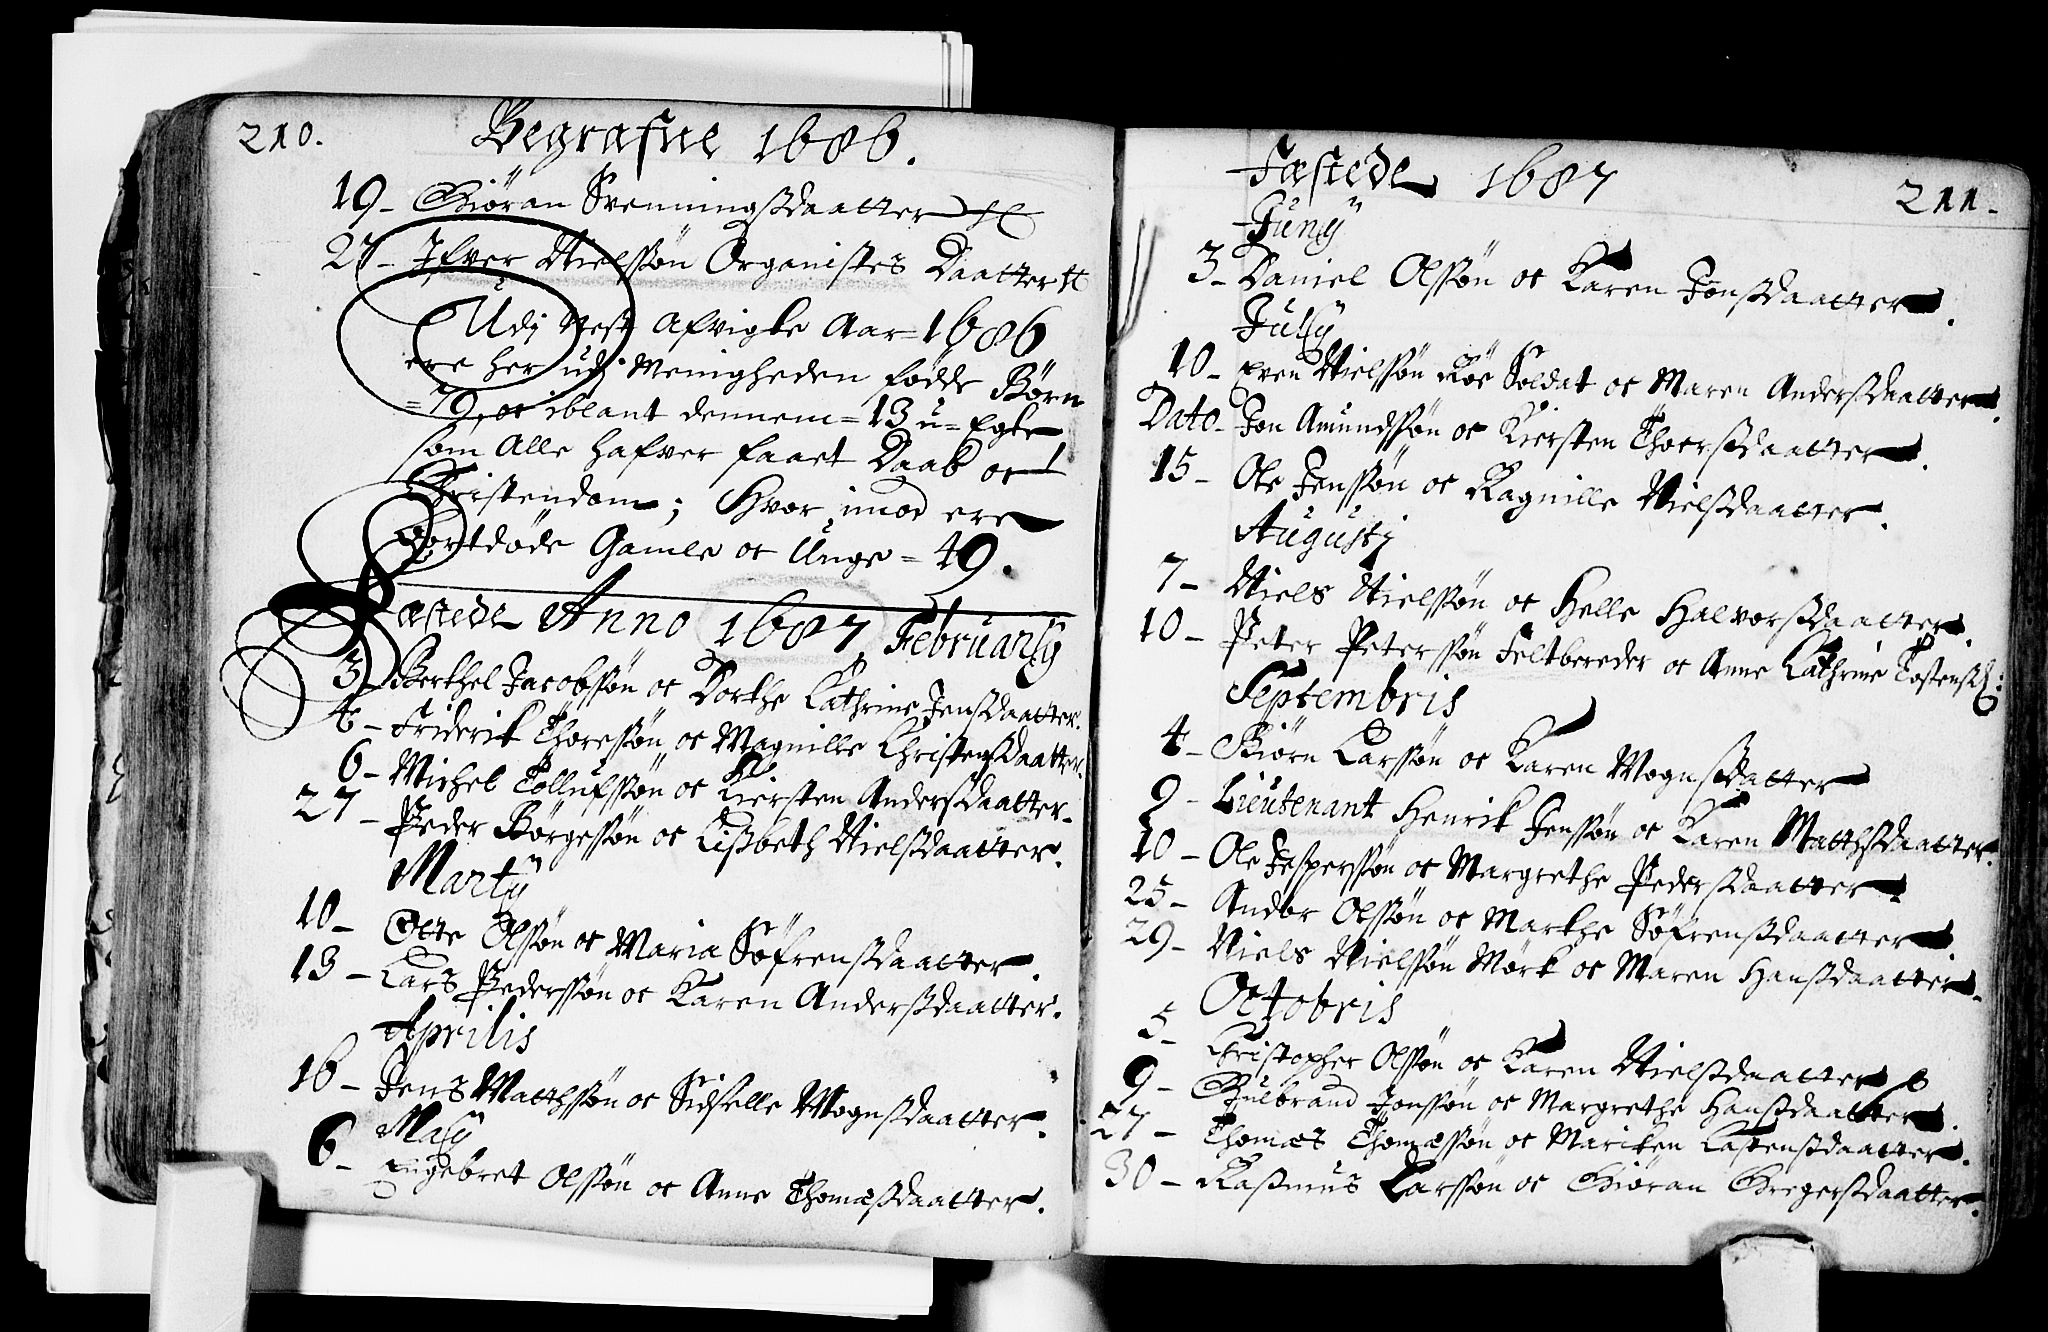 210.
Begrafne 1686.
19 - Giøran Svenningsdaatter
27 - Ifver Nielssøn Organistes Daatter
Udj Nest Afvigte Aar = 1686
ere her udj Menigheden fødde Børn
= 79, oc iblant dennem = 13 u = Egte
som Alle hafver faaet Daab oc
Christendom; Hvor imod ere
bortdøde Gamle oc Unge = 49.
Fæstede Anno 1687 Februarij
3 - Berthel Jacobssøn oc Dorthe Cathrine Jensdaatter.
4 - Friderik Thoressøn oc Magnille Christensdaatter.
6 - Michel Tollufssøn oc Kiersten Andersdaatter.
27 - Peder Børgessøn oc Lisbeth Nielsdaatter.
Martij
10 - Otte Olssøn oc Maria Søfrensdaatter.
13 - Lars Pederssøn oc Karen Andersdaatter.
Aprilis
16 - Jens Matthssøn oc Sidselle Mognsdaatter.
Maij
6 - Engebret Olssøn oc Anne Thomæsdaatter.
Fæstede 1687
211.
Junij
3 - Daniel Olssøn oc Karen Jonsdaatter.
Julij
10 - Even Nielssøn Röe Soldat oc Maren Andersdaatter.
Dato - Jon Amundssøn oc Kiersten Thoersdaatter.
15 - Ole Jenssøn oc Ragnille Nielsdaatter.
Augustj
7 - Niels Nielssøn oc Helle Halvorsdaatter.
10 - Peter Peterssøn Feltbereder oc Anne Cathrine Tostensd:
Septembris
4 - Biørn Larssøn oc Karen Mognsdatter
9 - Lieutenant Henrik Jenssøn oc Karen Matthsdaatter.
10 - Ole Jesperssøn oc Margrethe Pedersdaatter
25 - Andor Olssøn oc Marthe Søfrensdaatter.
29 - Niels Nielssøn Mørk oc Maren Hansdaatter.
Octobris
5 - Christopher Olssøn oc Karen Nielsdaatter
9 - Gulbrand Jonssøn oc Margrethe Hansdaatter.
27 - Thomæs Thomæssøn oc Mariken Lastensdaatter.
30 - Rasmus Larssøn oc Giøran Gregersdaatter.